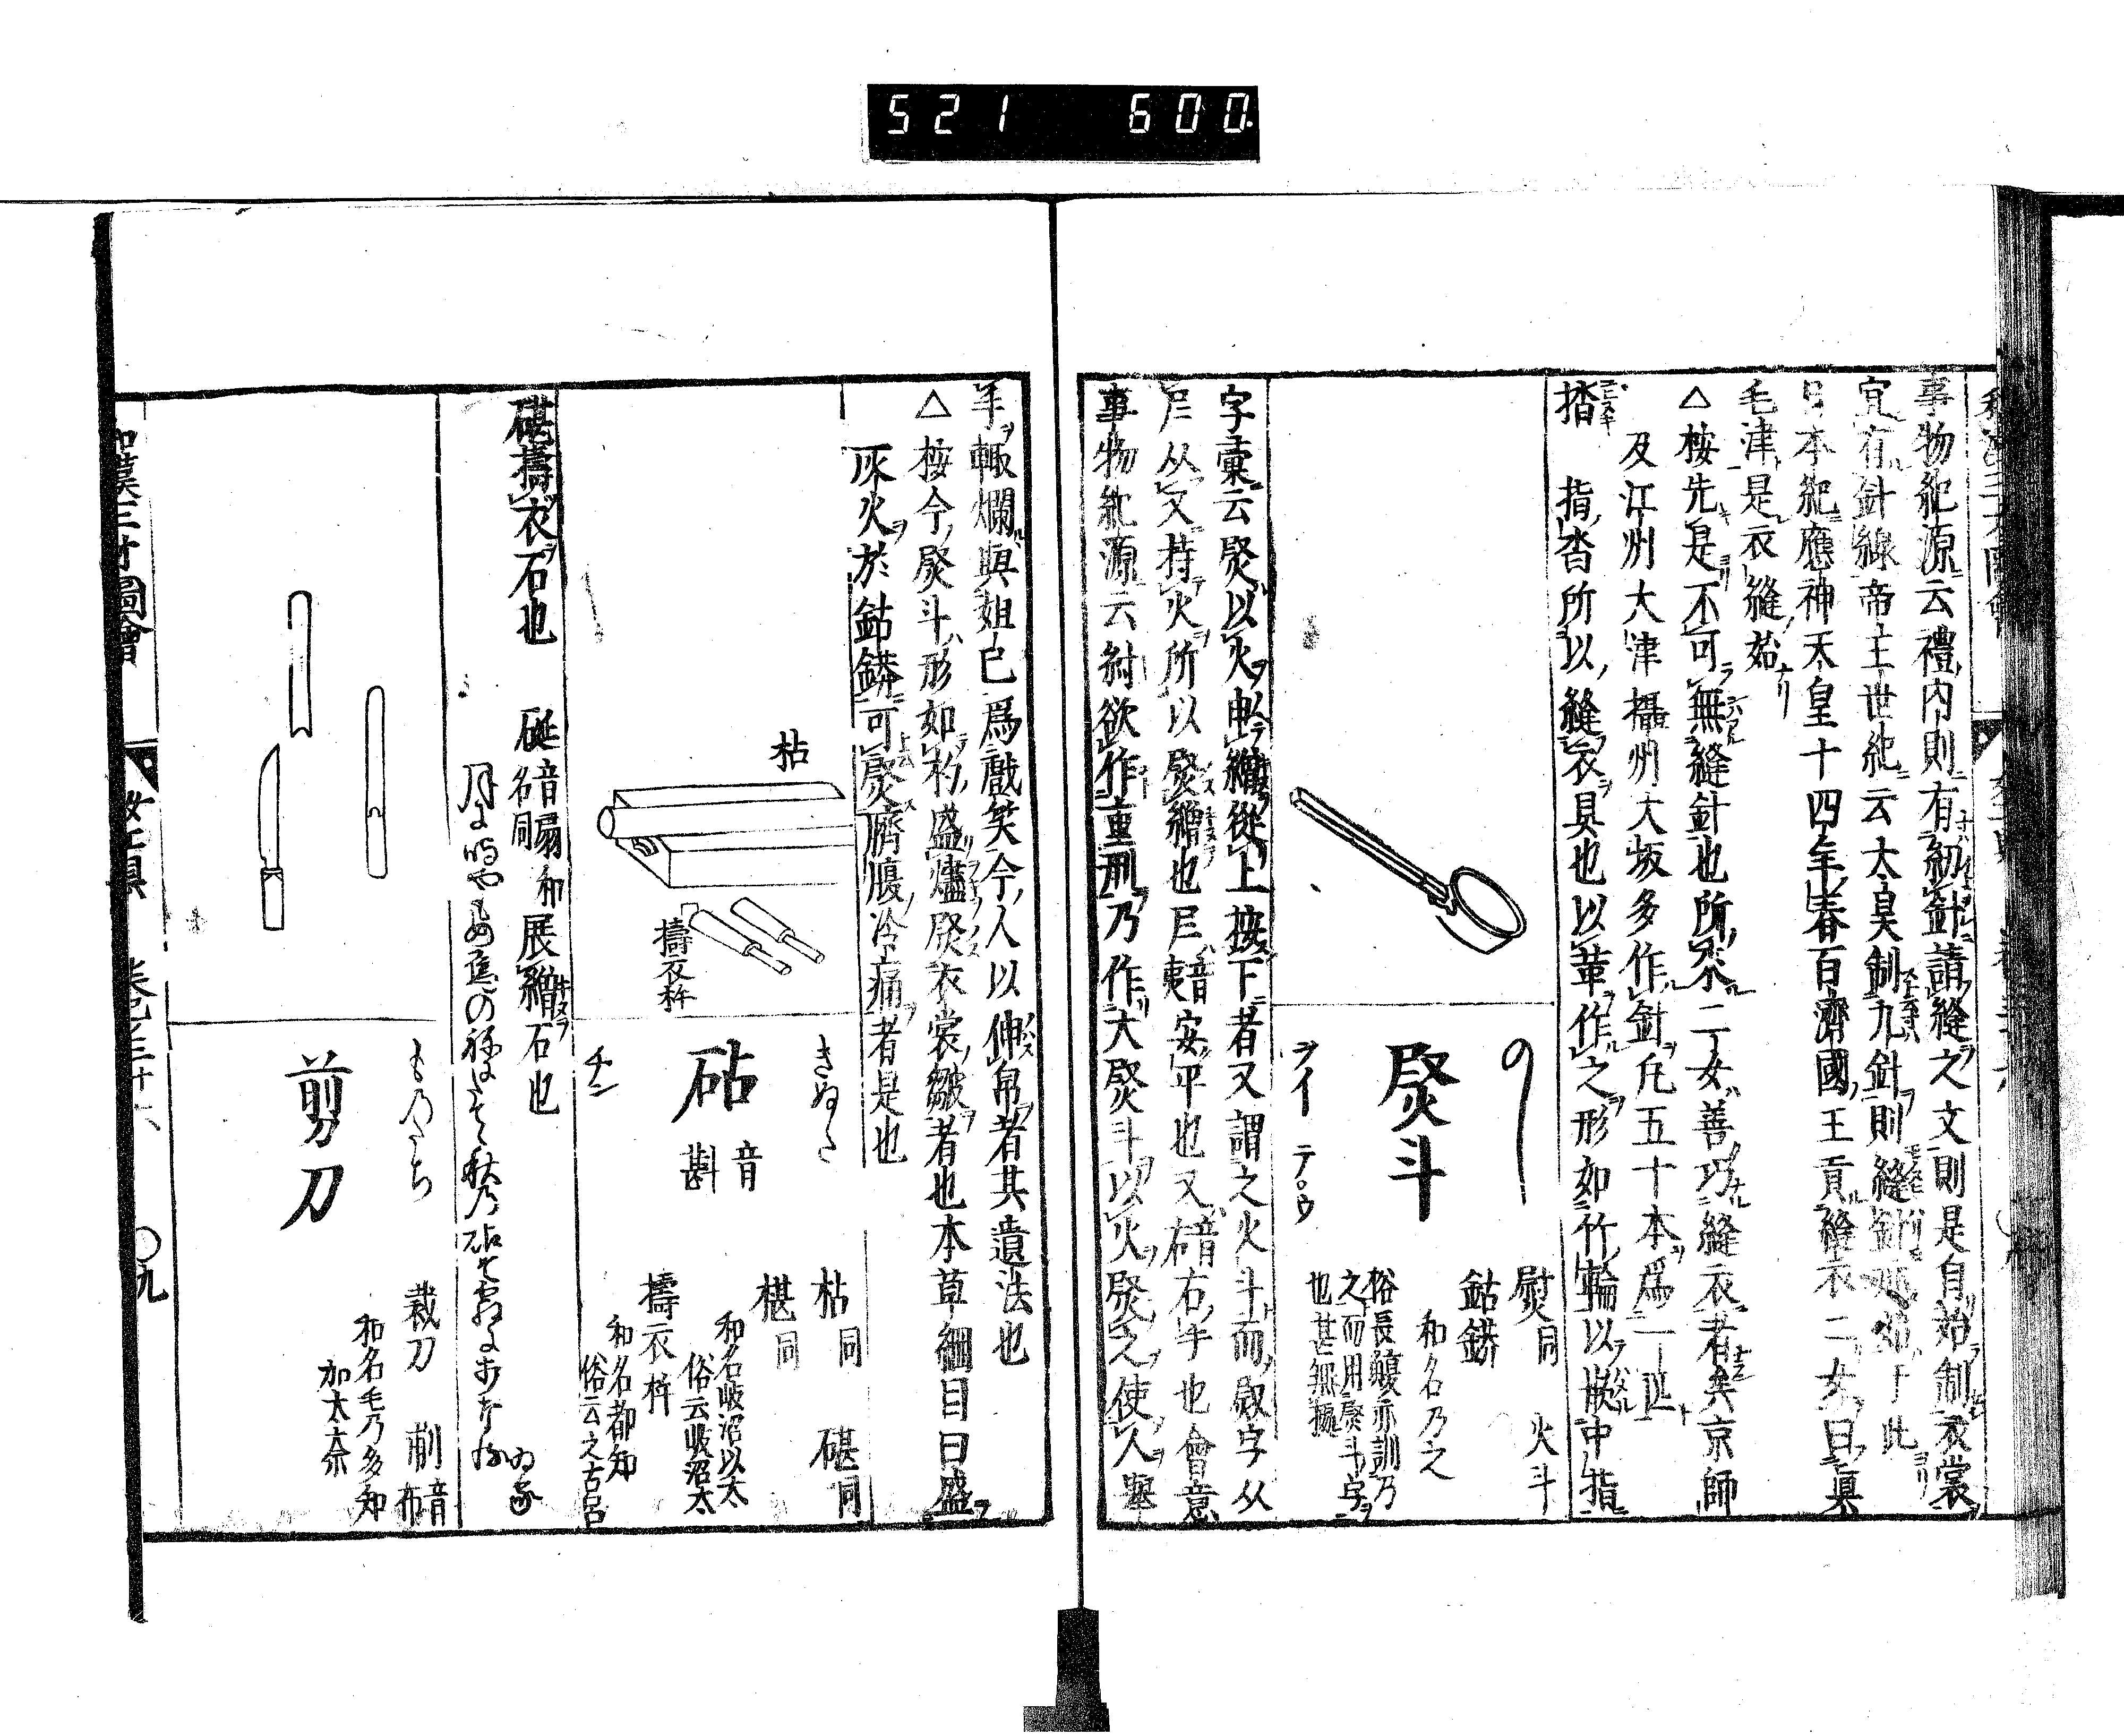 521 600.
事物紀源云禮内則有紉針請縫之文則是自始制衣裳
宜有針線帝王世紀云太昊制九針則縫針
日本紀應神天皇十四年春百濟國王貢縫衣二女曰眞
毛津是衣縫始ナリ
△按先是不可無縫針也所來二女善巧縫衣者矣京師
及江州大津攝州大坂多作針凡五十本爲一
揩 指沓所以縫衣具也以革作之形如竹輪以嵌中指
のし
熨斗
ヲイ テ゚ウ
熨同 火斗
鈷鉧
和名乃之
俗長鰒亦訓乃
之而用熨斗字
也甚無據
字彙云熨以火申繒從上按下者又謂之火斗而尉字从
𡰥从又持火所以熨繒也𡰥音夷安平也又音右右手也會意
事物紀源云紂欲作重刑乃作大熨斗以火熨之使人舉
手輙爛與妲己爲戲笑今人以伸帛者其遺法也
△按今熨斗形如杓盛爐熨衣裳皺者也本草綱目曰盛
灰火於鈷鉧可熨臍腹冷痛者是也
枯
擣衣杵
きぬた
砧
音斟
チン
枯同 碪同
椹同
和名岐沼以太
俗云岐沼太
擣衣杵
和名都知
俗云之古呂
碪擣衣石也 硟音扇和名同展繒石也
もの たち
剪刀
裁刀 剬音布
和名毛乃多知
加太奈
和漢三才圖會 女工具 卷之三十六 〇九